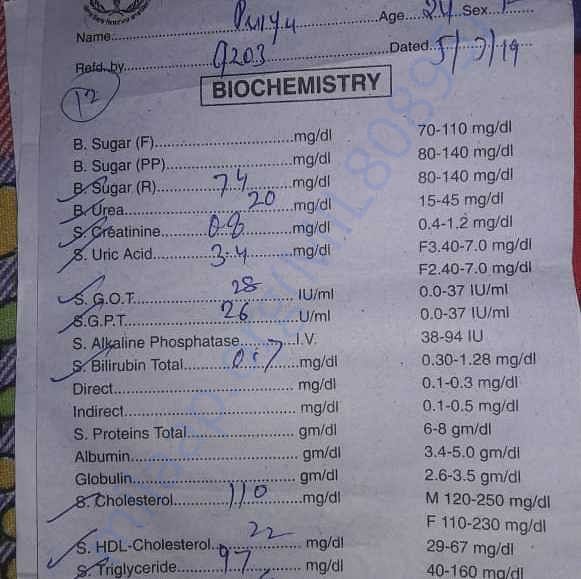 Name.......... Age.... 24 Sex.......
Refd. by.......... 9203 Dated.. 5/7/19
12
BIOCHEMISTRY
B. Sugar (F)..........mg/dl 70-110 mg/dl
B. Sugar (PP)..........mg/dl 80-140 mg/dl
B. Sugar (R).......... 74 ..........mg/dl 80-140 mg/dl
B. Urea.......... 20 ..........mg/dl 15-45 mg/dl
S. Creatinine.......... 0.8 ..........mg/dl 0.4-1.2 mg/dl
S. Uric Acid.......... 3.4 ..........mg/dl F3.40-7.0 mg/dl
F2.40-7.0 mg/dl
S. G.O.T.......... 28 .......... IU/ml 0.0-37 IU/ml
S.G.P.T.......... 26 ..........U/ml 0.0-37 IU/ml
S. Alkaline Phosphatase..........I.V. 38-94 IU
S. Bilirubin Total.......... 0.7 ..........mg/dl 0.30-1.28 mg/dl
Direct.......... mg/dl 0.1-0.3 mg/dl
Indirect.......... mg/dl 0.1-0.5 mg/dl
S. Proteins Total.......... gm/dl 6-8 gm/dl
Albumin.......... gm/dl 3.4-5.0 gm/dl
Globulin.......... gm/dl 2.6-3.5 gm/dl
S. Cholesterol.......... 110 ..........mg/dl M 120-250 mg/dl
F 110-230 mg/dl
S. HDL-Cholesterol.......... 22 .......... mg/dl 29-67 mg/dl
S. Triglyceride.......... 97 .......... mg/dl 40-160 mg/dl